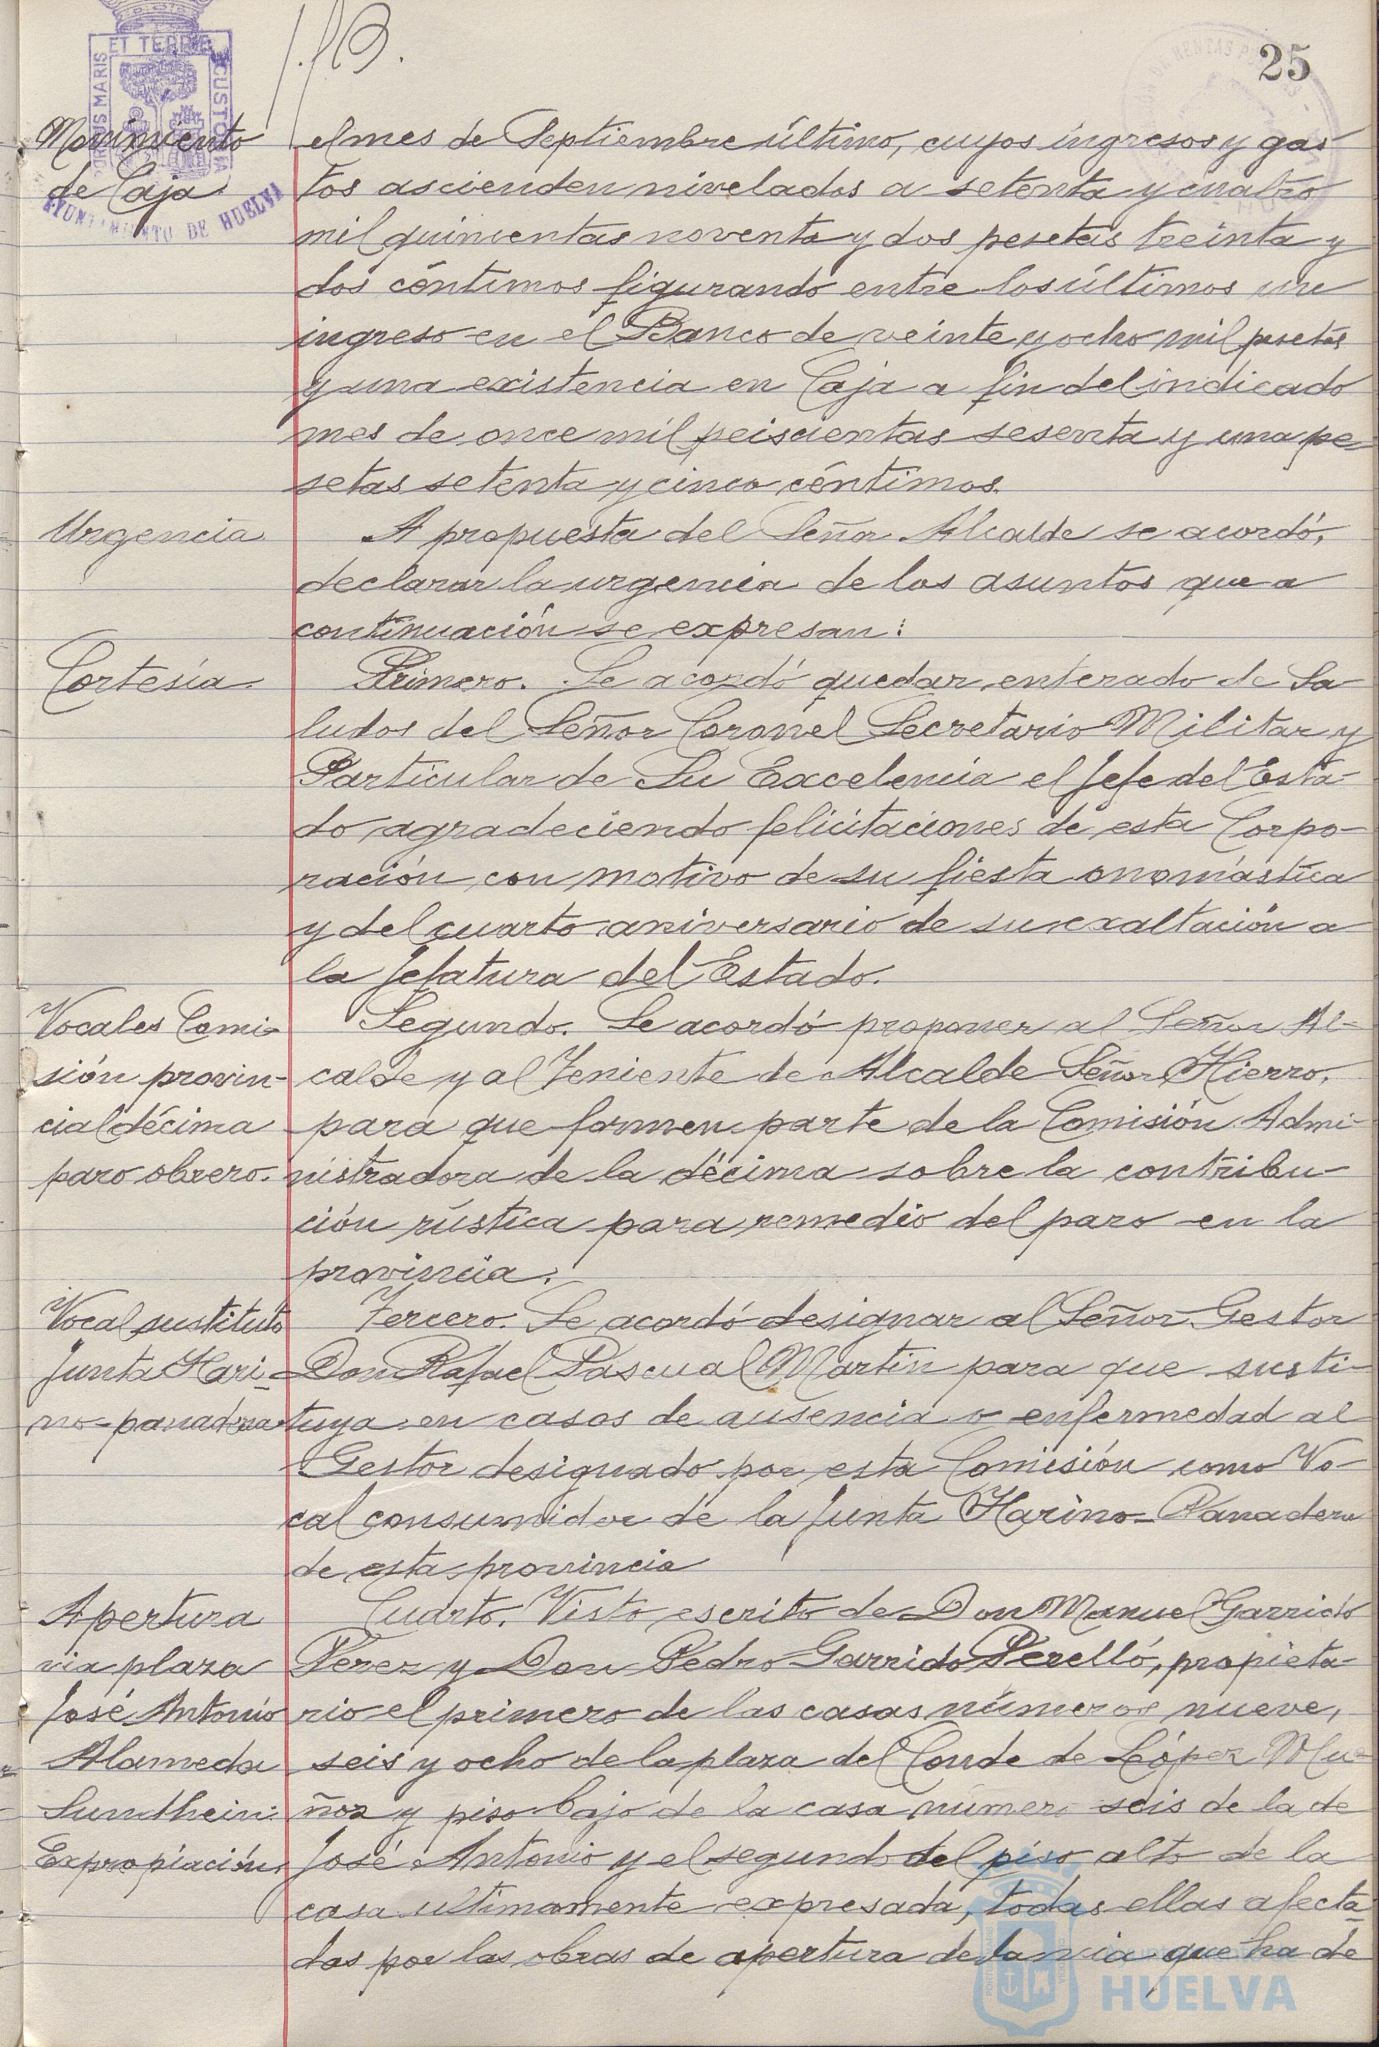 25
PORTUS MARIS ET TERRE CUSTODIA
AYUNTAMIENTO DE HUELVA
Movimiento
de Caja
el mes de Septiembre último, cuyos ingresos y gas-
tos ascienden nivelados a setenta y cuatro
mil quinientas noventa y dos pesetas treinta y
dos céntimos figurando entre los últimos un
ingreso en el Banco de veinte y ocho mil pesetas
y una existencia en Caja a fin del indicado
mes de once mil seiscientas sesenta y una pe-
setas setenta y cinco céntimos.
Urgencia
A propuesta del Señor Alcalde se acordó,
declarar la urgencia de los asuntos que a
continuación se expresan:
Cortesía
Primero. Se acordó quedar enterado de Sa-
ludos del Señor Coronel Secretario Militar y
Particular de Su Excelencia el Jefe del Esta-
do agradeciendo felicitaciones de esta Corpo-
ración con motivo de su fiesta onomástica
y del cuarto aniversario de su exaltación a
la Jefatura del Estado.
Vocales Comi-
sión provin-
cial décima
paro obrero.
Segundo. Se acordó proponer al Señor Al-
calde y al Teniente de Alcalde Señor Hierro,
para que formen parte de la Comisión Admi-
nistradora de la décima sobre la contribu-
ción rústica para remedio del paro en la
provincia.
Vocal sustituto
Junta Hari-
no-panadera
Tercero. Se acordó designar al Señor Gestor
Don Rafael Pascual Martin para que susti-
tuya en casos de ausencia o enfermedad al
Gestor designado por esta Comisión como Vo-
cal consumidor de la Junta Harino-Panadera
de esta provincia
Apertura
via plaza
José Antonio
Alameda
Sundhein:
Expropiación
Cuarto. Visto escrito de Don Manuel Garrido
Perez y Don Pedro Garrido Perelló, propieta-
rio el primero de las casas números nueve,
seis y ocho de la plaza del Conde de López Mu-
ñoz y piso bajo de la casa número seis de la de
José Antonio y el segundo del piso alto de la
casa ultimamente expresada, todas ellas afecta-
das por las obras de apertura de la via que ha de
HUELVA